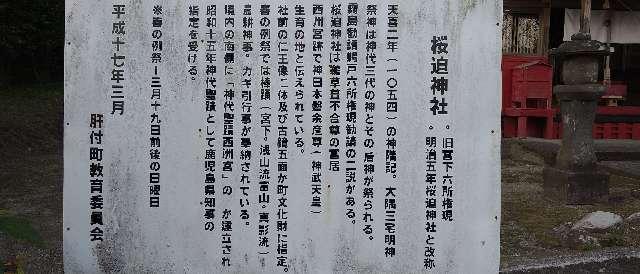 桜迫神社
。旧宮下六所権現
。明治五年桜迫神社と改称
天喜二年（一〇五四）の神階記。大隅三宅明神
祭神は神代三代の神とその后神が祭られる。
霧島勧請鵜戸六所権現勧請の二説がある。
桜迫神社は鸕草葺不合尊の宮居
西洲宮跡で神日本磐余彦尊（神武天皇）
生育の地と伝えられている。
社前の仁王像二体及び古鏡五面が町文化財に指定。
春の例祭では棒踊（宮下。浅山流富山。真影流）
農耕神事。カギ引行事が奉納されている。
境内の南側に「神代聖蹟西洲宮」の　が建立され
昭和十五年神代聖蹟として鹿児島県知事の
指定を受ける。
※春の例祭ー三月十九日前後の日曜日
平成十七年三月
肝付町教育委員会